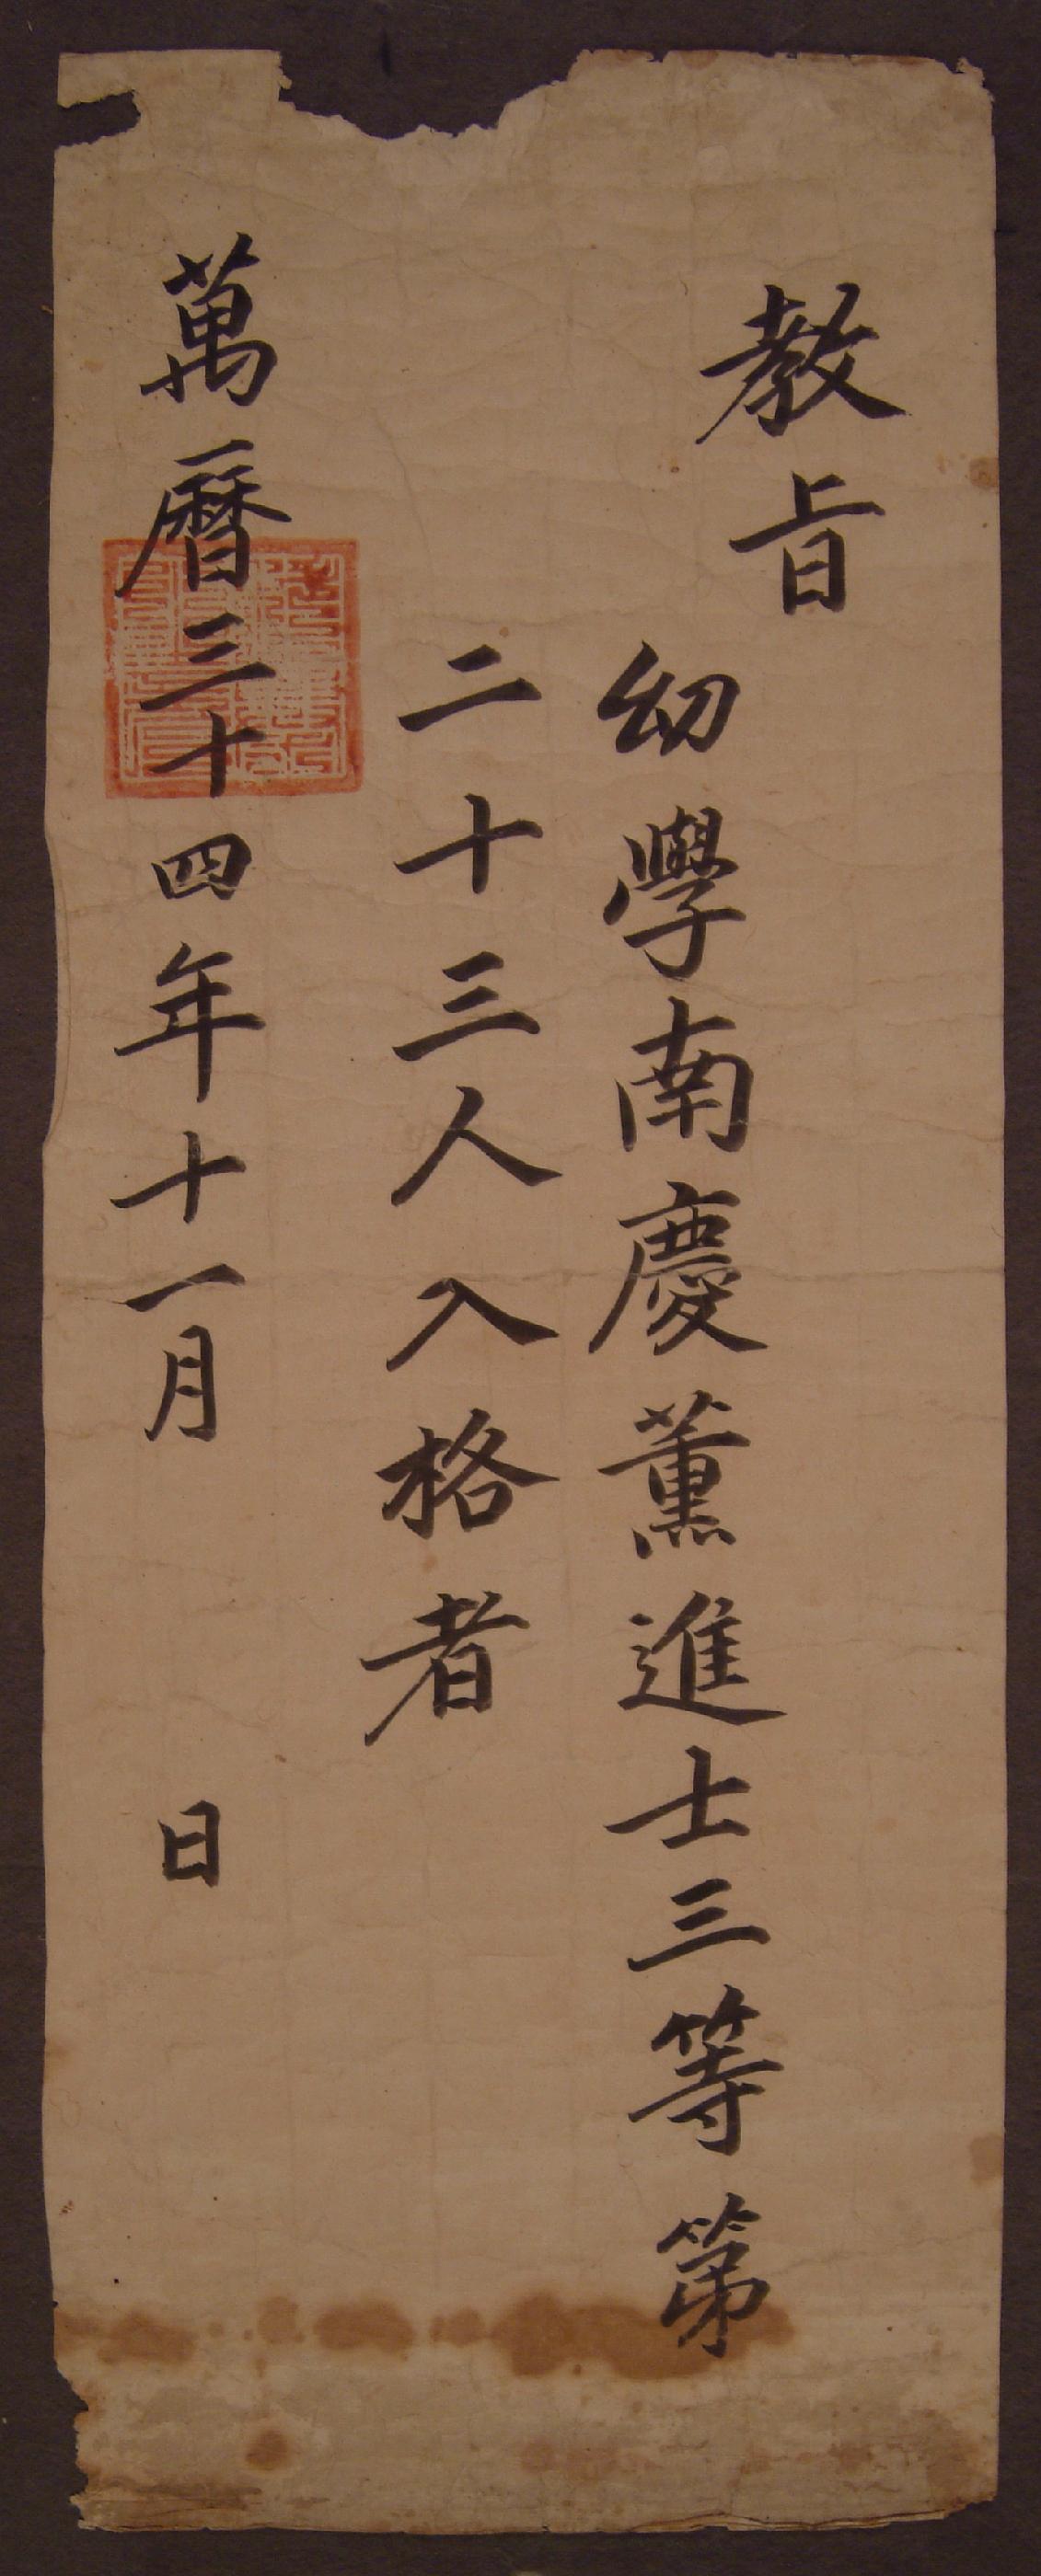 教旨
幼學南慶薰進士三等第
二十三人入格者
萬曆三十四年十一月　日